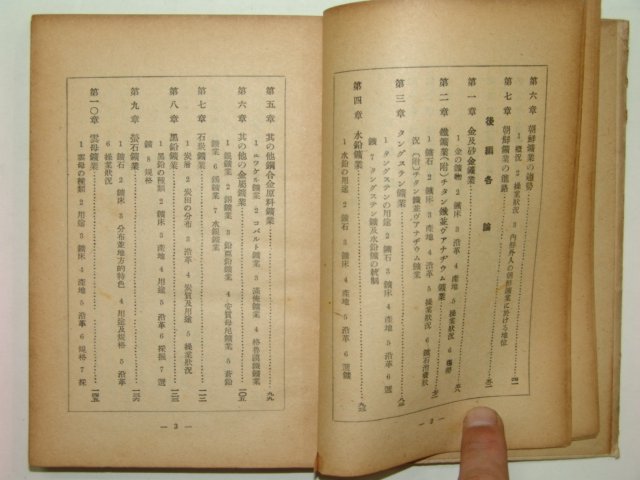 第六章 朝鮮鑛業の趨勢
1 概況 2 操業狀況 3 內鮮外人の朝鮮鑛業に於ける地位
第七章 朝鮮鑛業の進路
後編 各論
第一章 金及砂金鑛業
1 金の鑛物 2 鑛床 3 沿革 4 產地 5 操業狀況 6
第二章 鐵鑛業(附)チタン鐵並ヴアナヂウム鑛業
1 鑛石 2 鑛床 3 產地 4 沿革 5 操業狀況 6 鑛石消費狀
況 (附)チタン鐵並ヴアナヂウム鑛業
第三章 タングステン鑛業
1 タングステンの用途 2 鑛石 3 鑛床 4 產地 5 沿革 6 選
鑛 7 タングステン鑛及水鉛鑛の統制
第四章 水鉛鑛業
1 水鉛の用途 2 鑛石 3 鑛床 4 產地 5 沿革 6 選鑛
— 2 —
第五章 其の他鋼合金原料鑛業 九九
1 ニツケル鑛業 2 コバルト鑛業 3 滿俺鑛業 4 格魯謨鐵鑛業
第六章 其の他の金屬鑛業 一〇五
1 銀鑛業 2 銅鑛業 3 鉛亞鉛鑛業 4 安質母尼鑛業 5 蒼鉛
鑛業 6 錫鑛業 7 水銀鑛業
第七章 石炭鑛業 一一三
1 炭層 2 炭田の分布 3 沿革 4 炭質及用途 5 操業狀況
第八章 黑鉛鑛業 一二三
1 黑鉛の種類 2 鑛床 3 產地 4 用途 5 沿革 6 採掘 7 選
鑛 8 規格
第九章 螢石鑛業 一三六
1 鑛石 2 鑛床 3 分布並地方的特色 4 用途及規格 5 沿革
6 操業狀況
第一〇章 雲母鑛業 一四五
1 雲母の種類 2 用途 3 鑛床 4 產地 5 沿革 6 規格 7 採
— 3 —